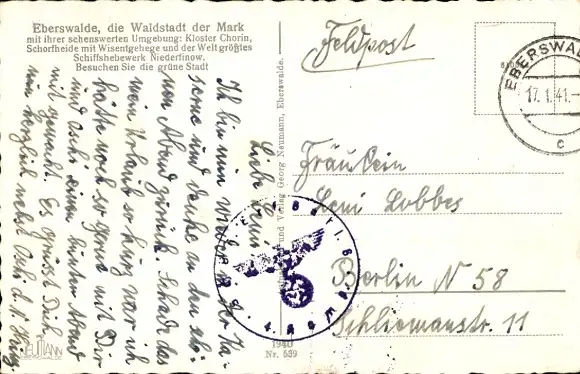 Eberswalde, die Waldstadt der Mark
mit ihrer sehenswerten Umgebung: Kloster Chorin,
Schorfheide mit Wisentgehege und der Welt größtes
Schiffshebewerk Niederfinow.
Besuchen Sie die grüne Stadt
Feldpost
EBERSWALDE
17.1.41.-
c
Liebe Leni!
Ich bin nun wieder in der Ka-
serne und denke an den schö-
nen Abend zurück. Schade das
mein Urlaub so kurz war ich
hätte noch so gerne mit Dir
und einen bunten Abend
mit gemacht. Es grüsst Dich
nun herzlich nebst
Georg Neumann, Eberswalde.
Fräulein
Leni Lobbes
Berlin N 58
Schliemanstr. 11
1940
Nr. 539
NEUMANN